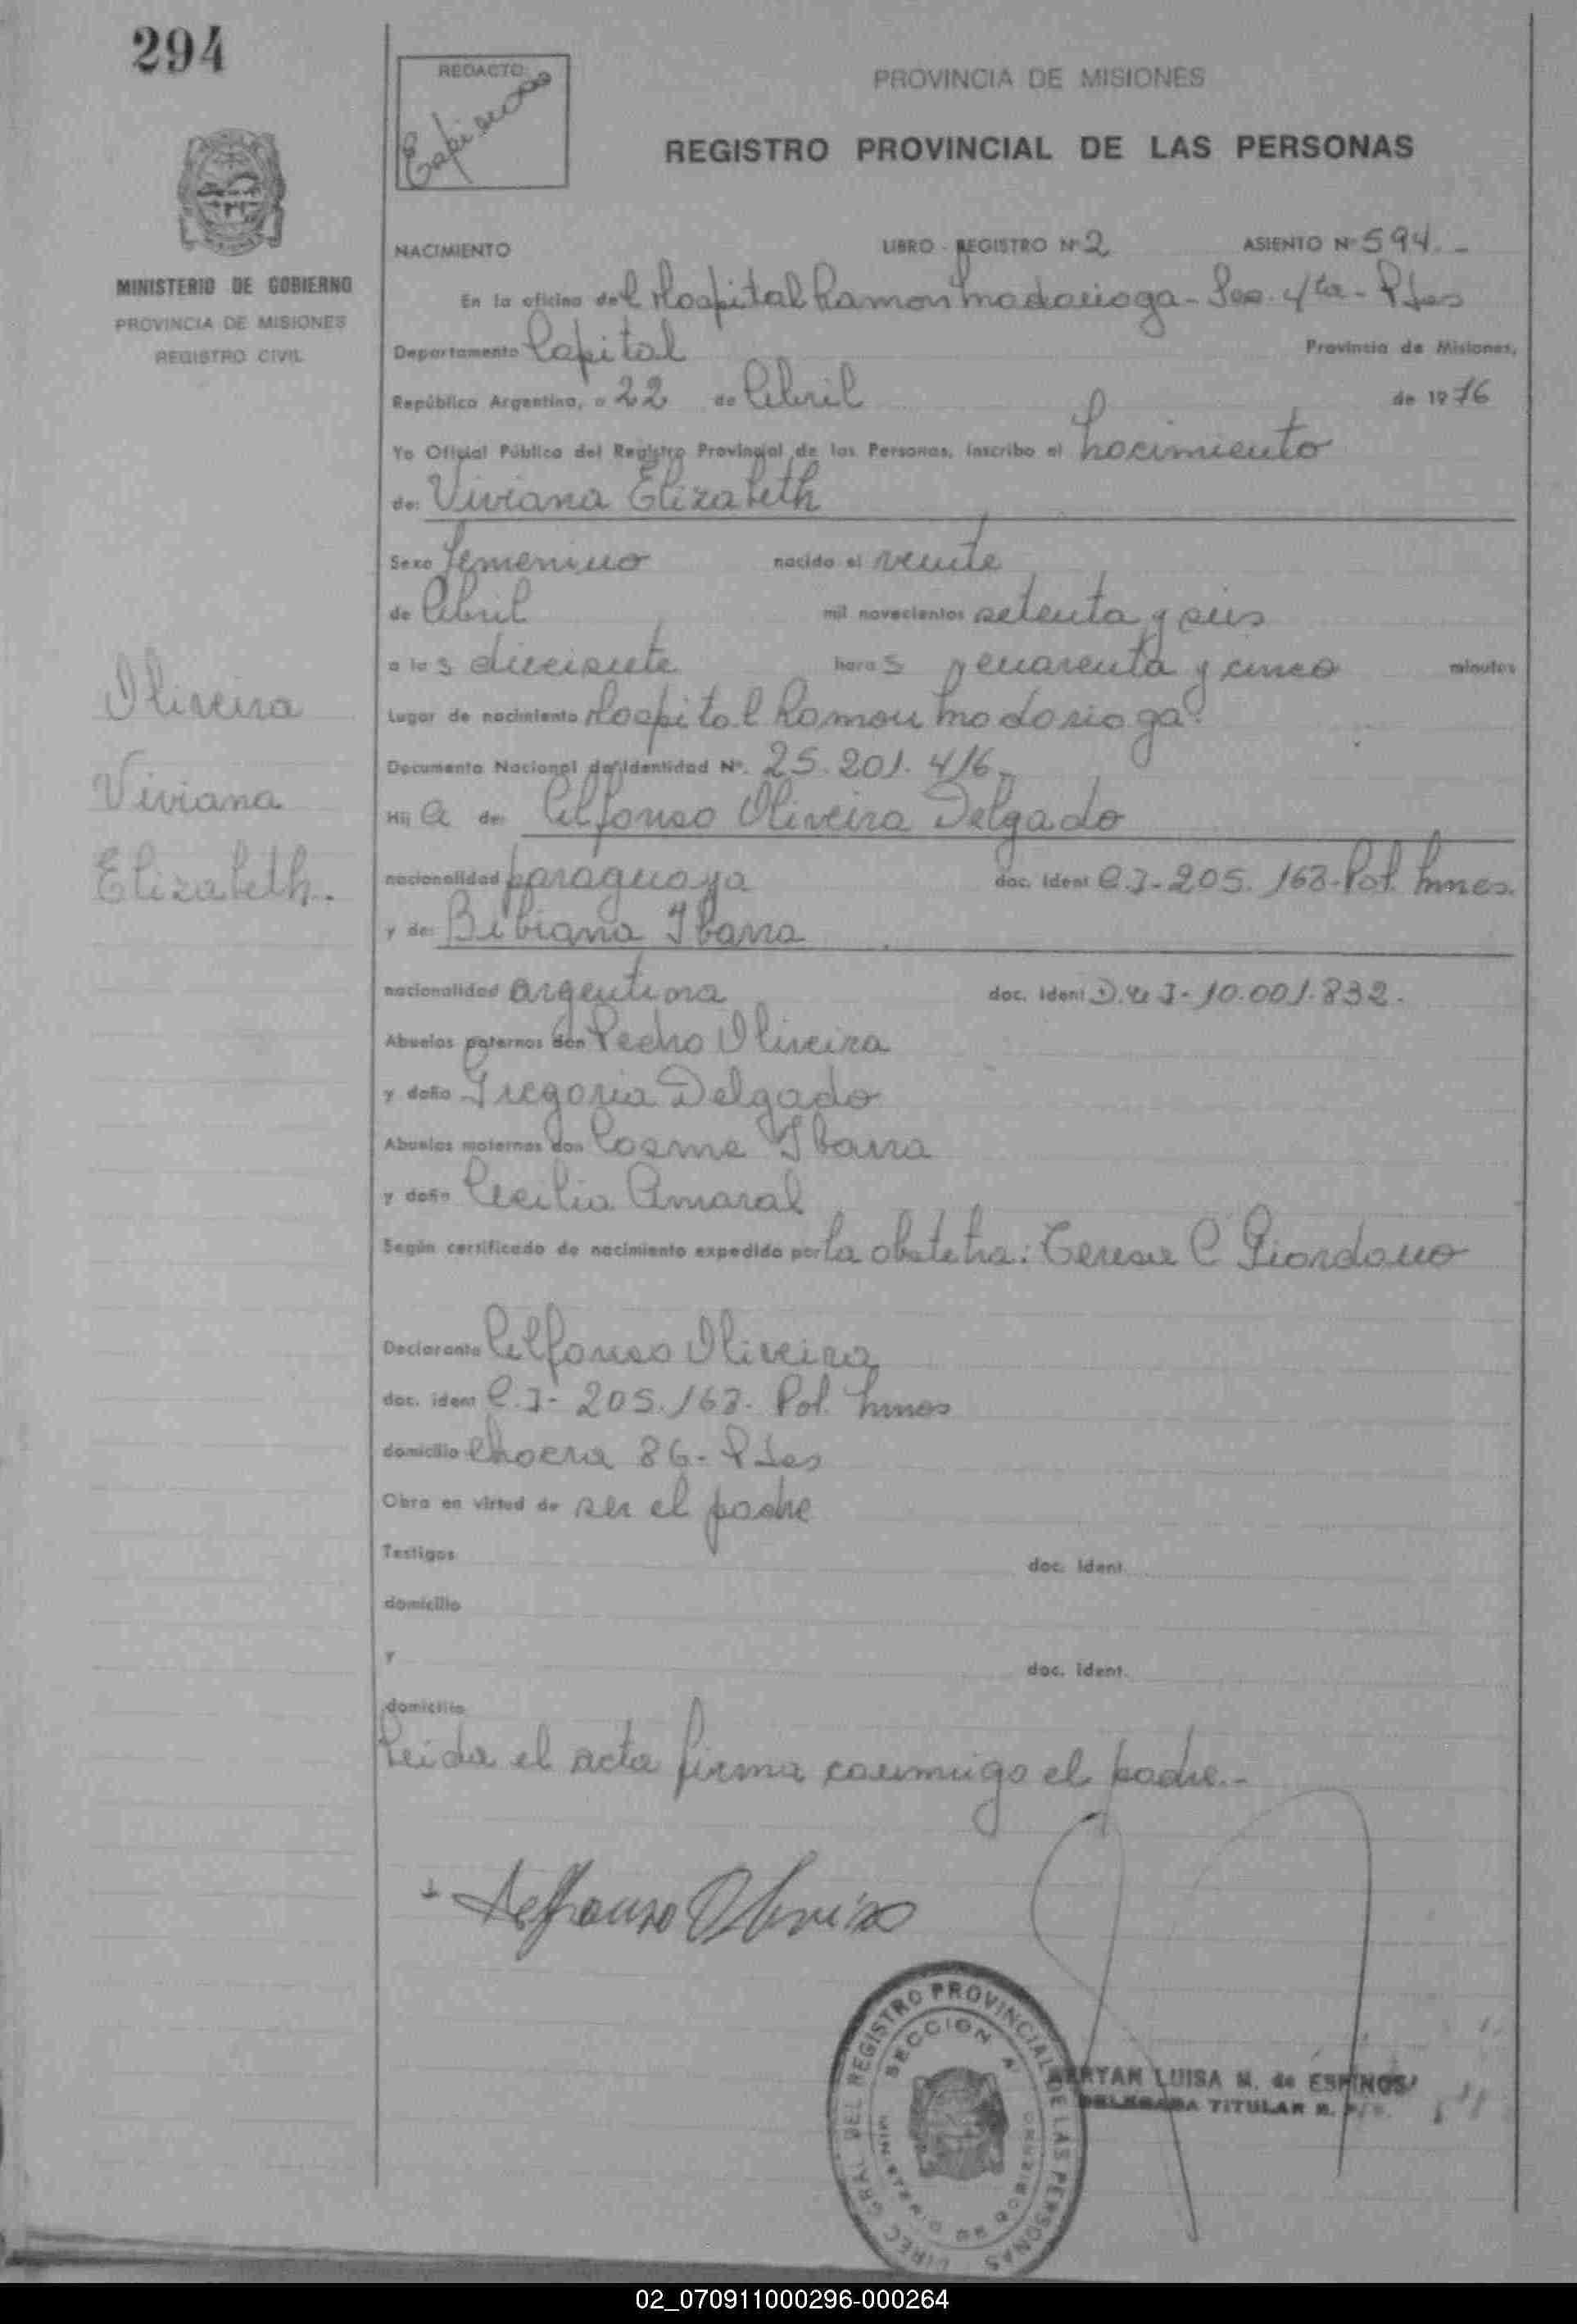 294
REDACTO
Espinosa
PROVINCIA DE MISIONES
REGISTRO PROVINCIAL DE LAS PERSONAS
MINISTERIO DE GOBIERNO
PROVINCIA DE MISIONES
REGISTRO CIVIL
NACIMIENTO LIBRO - REGISTRO Nº 2 ASIENTO Nº 594.-
En la oficina del Hospital Ramon Madariaga - Sec. 4ta - Pdas
Departamento Capital Provincia de Misiones,
República Argentina, a 22 de Abril de 1976
Yo Oficial Público del Registro Provincial de las Personas, inscribo el nacimiento
de: Viviana Elizabeth
Sexo femenino nacido el veinte
de Abril mil novecientos setenta y seis
a las diecisiete horas y cuarenta y cinco minutos
Lugar de nacimiento Hospital Ramon Madariaga.
Documento Nacional de Identidad Nº. 25.201.416-
Hija de: Alfonso Oliveira Delgado
nacionalidad paraguaya doc. ident C.I-205.163-Pol. Mnes.
y de: Bibiana Ibarra
nacionalidad argentina doc. ident D.N I- 10.001.832.
Abuelos paternos don Pedro Oliveira
y doña Gregoria Delgado
Abuelos maternos don Cosme Ibarra
y doña Cecilia Amaral
Según certificado de nacimiento expedido por la obstetra: Teresa C Giordano
Oliveira
Viviana
Elizabeth.
Declarante Alfonso Oliveira
doc. ident C.I- 205.163- Pol. Mnes
domicilio Chacra 86- Pdas
Obra en virtud de ser el padre
Testigos doc. ident.
domicilio
y doc. ident.
domicilio
Leida el acta firma conmigo el padre.-
Alfonso Oliveira
DIREC. GRAL. DEL REGISTRO PROVINCIAL DE LAS PERSONAS
SECCION 4ª
MINISTERIO DE GOBIERNO
LUISA M. de ESPINOSA
DELEGADA TITULAR R. P.
02_070911000296-000264